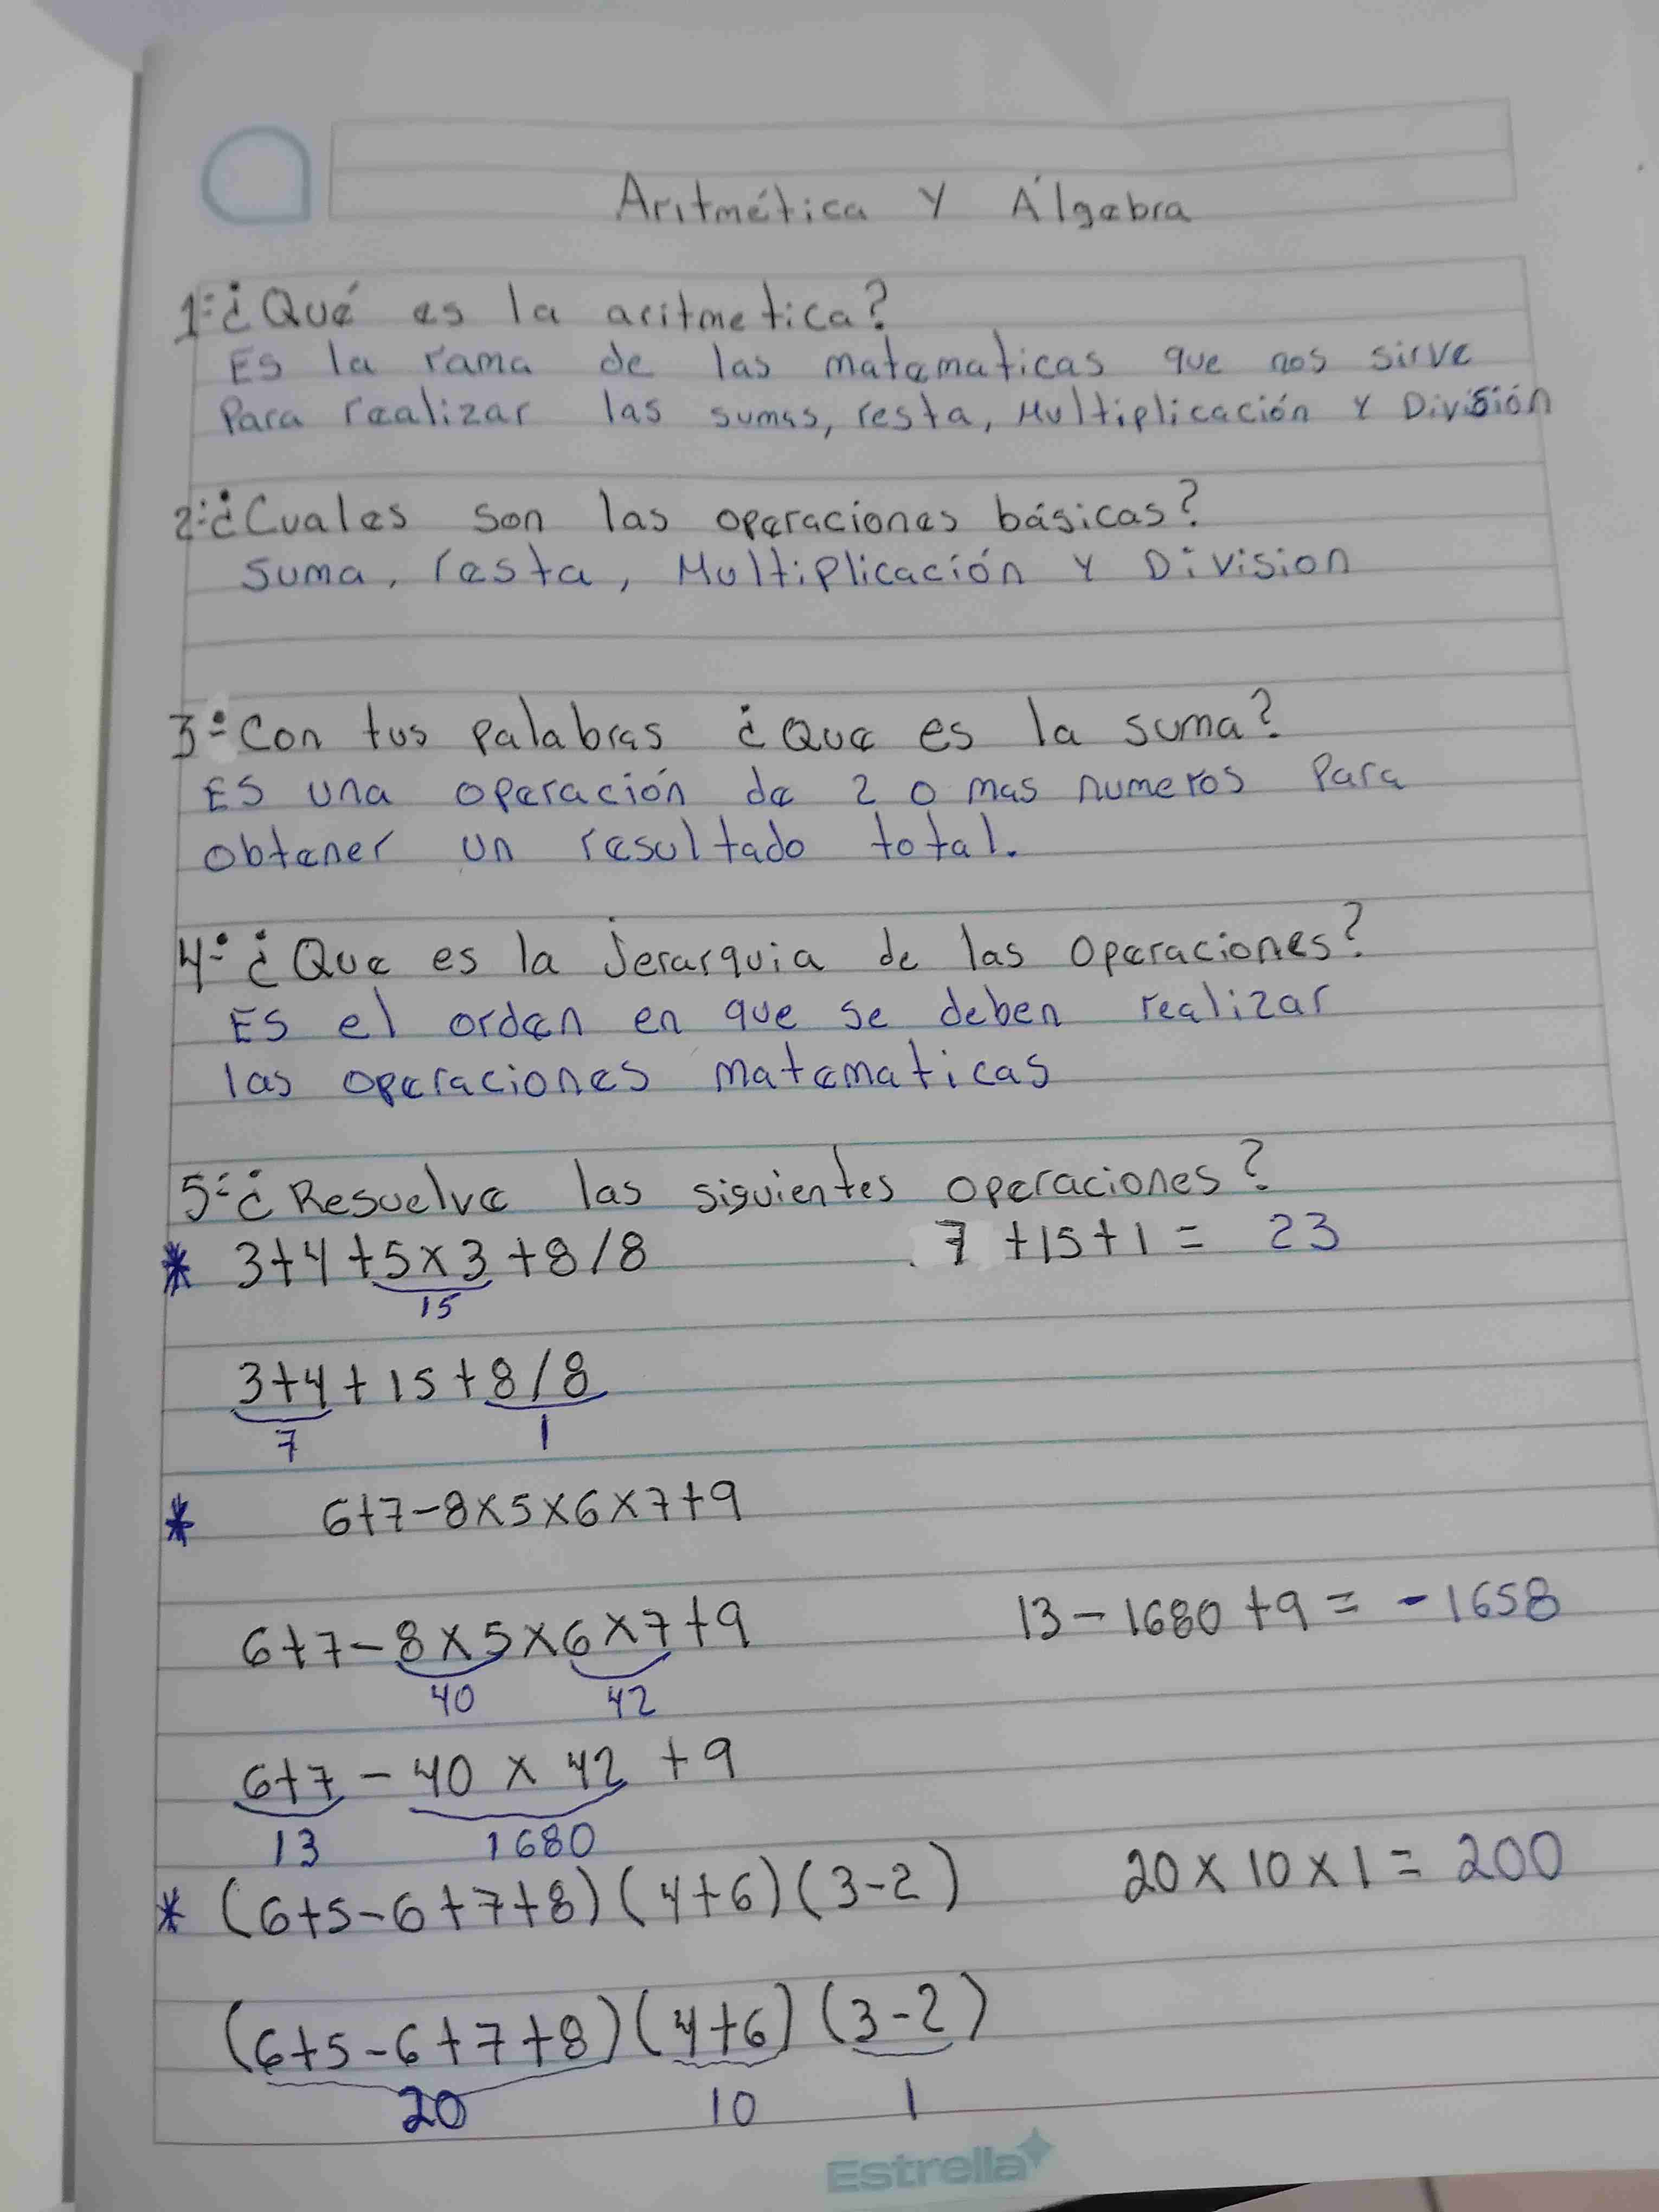 Aritmética Y Álgebra
1.- ¿Qué es la aritmetica?
Es la rama de las matematicas que nos sirve
Para realizar las sumas, resta, Multiplicación Y División
2.- ¿Cuales son las operaciones básicas?
Suma, resta, Multiplicación Y Division
3.- Con tus palabras ¿Que es la suma?
ES una operación de 2 o mas numeros Para
obtener un resultado total.
4.- ¿Que es la Jerarquia de las Operaciones?
ES el orden en que se deben realizar
las operaciones matematicas
5.- ¿Resuelve las siguientes operaciones?
* 3+4+5x3+8/8 7+15+1= 23
15
3+4+15+8/8
7 1
* 6+7-8x5x6x7+9
6+7-8x5x6x7+9 13-1680+9= -1658
40 42
6+7-40x42+9
13 1680
* (6+5-6+7+8)(4+6)(3-2) 20x10x1=200
(6+5-6+7+8)(4+6)(3-2)
20 10 1
Estrella